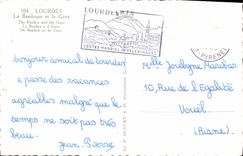 164 LOURDES
La Basilique et le Gave
The Basilica and the Gave
La Basilica y el Gave
De Basiliek en de Gave
LOURDES
CENTRE MONDIAL DE PELERINAGES
Bonjour amical de Lourdes
je passe des vacances
agréables malgré que le
temps ne soit pas très
beau.
Jean Pierre
Melle Jocelyne
10, Rue de l'Egalité
Voüel
(Aisne)